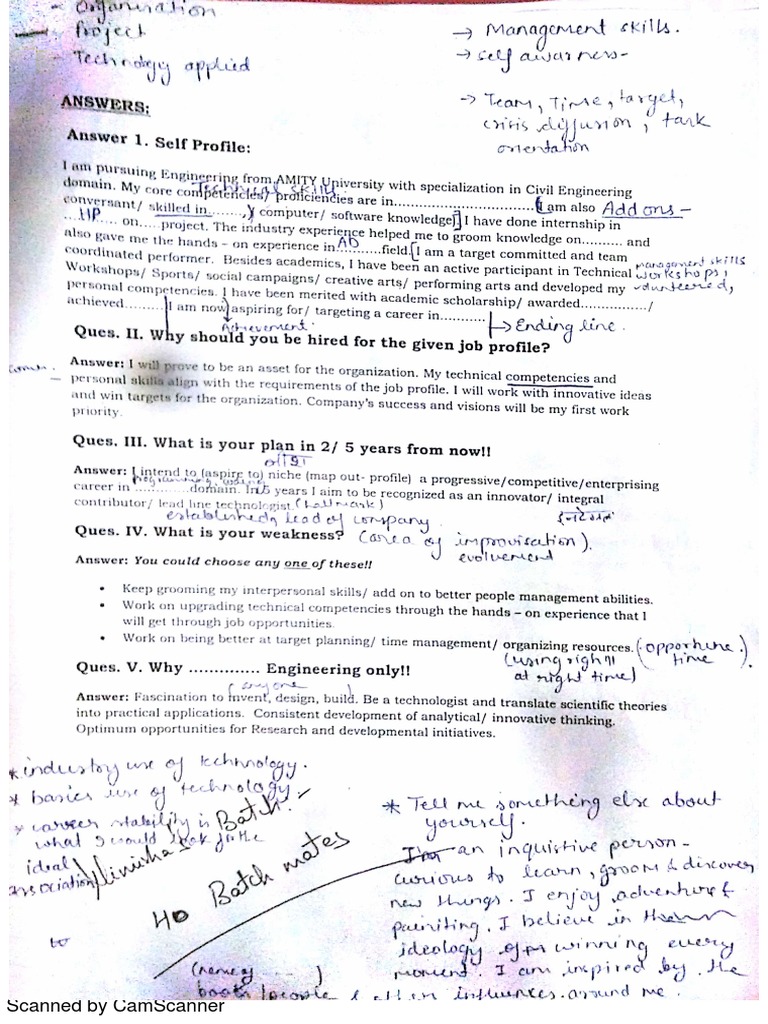 - Organisation
- Project
- Technology applied
→ Management skills.
→ self awareness -
→ Team, Time, target,
crisis diffusion, task
orientation
ANSWERS:
Answer 1. Self Profile:
I am pursuing Engineering from AMITY University with specialization in Civil Engineering
Technical skills
domain. My core competencies/ proficiencies are in..............................I am also Add ons -
conversant/ skilled in ........ computer/ software knowledge. I have done internship in
HP
...... on.....project. The industry experience helped me to groom knowledge on.......... and
also gave me the hands - on experience in..........field. I am a target committed and team
management skills
coordinated performer. Besides academics, I have been an active participant in Technical
workshops,
Workshops/ Sports/ social campaigns/ creative arts/ performing arts and developed my
volunteered,
personal competencies. I have been merited with academic scholarship/ awarded................/
achieved......... I am now aspiring for/ targeting a career in...........
Achievement.
→ Ending line.
Ques. II. Why should you be hired for the given job profile?
Answer: I will prove to be an asset for the organization. My technical competencies and
personal skills align with the requirements of the job profile. I will work with innovative ideas
and win targets for the organization. Company's success and visions will be my first work
priority.
Ques. III. What is your plan in 2/ 5 years from now!!
Answer: I intend to (aspire to) niche (map out- profile) a progressive/competitive/enterprising
programming, coding
career in ............domain. In 5 years I aim to be recognized as an innovator/ integral
contributor/ lead line technologist. (hallmark)
established, lead of company
Ques. IV. What is your weakness? (area of improvisation).
evolvement
Answer: You could choose any one of these!!
• Keep grooming my interpersonal skills/ add on to better people management abilities.
• Work on upgrading technical competencies through the hands – on experience that I
will get through job opportunities.
• Work on being better at target planning/ time management/ organizing resources. (opportune
time).
(using right
at right time)
Ques. V. Why .............. Engineering only!!
(anyone )
Answer: Fascination to invent, design, build. Be a technologist and translate scientific theories
into practical applications. Consistent development of analytical/ innovative thinking.
Optimum opportunities for Research and developmental initiatives.
* industry use of technology.
* basics use of technology
* career stability is
what I would look for the
ideal
association
Batch -
40 Batch mates
to
* Tell me something else about
yourself.
an inquistive person -
curious to learn, groom & discover
new things. I enjoy adventure &
painting. I believe in
ideology of winning every
moment. I am inspired by the
(name of ....)
book/people & other influences around me.
Scanned by CamScanner